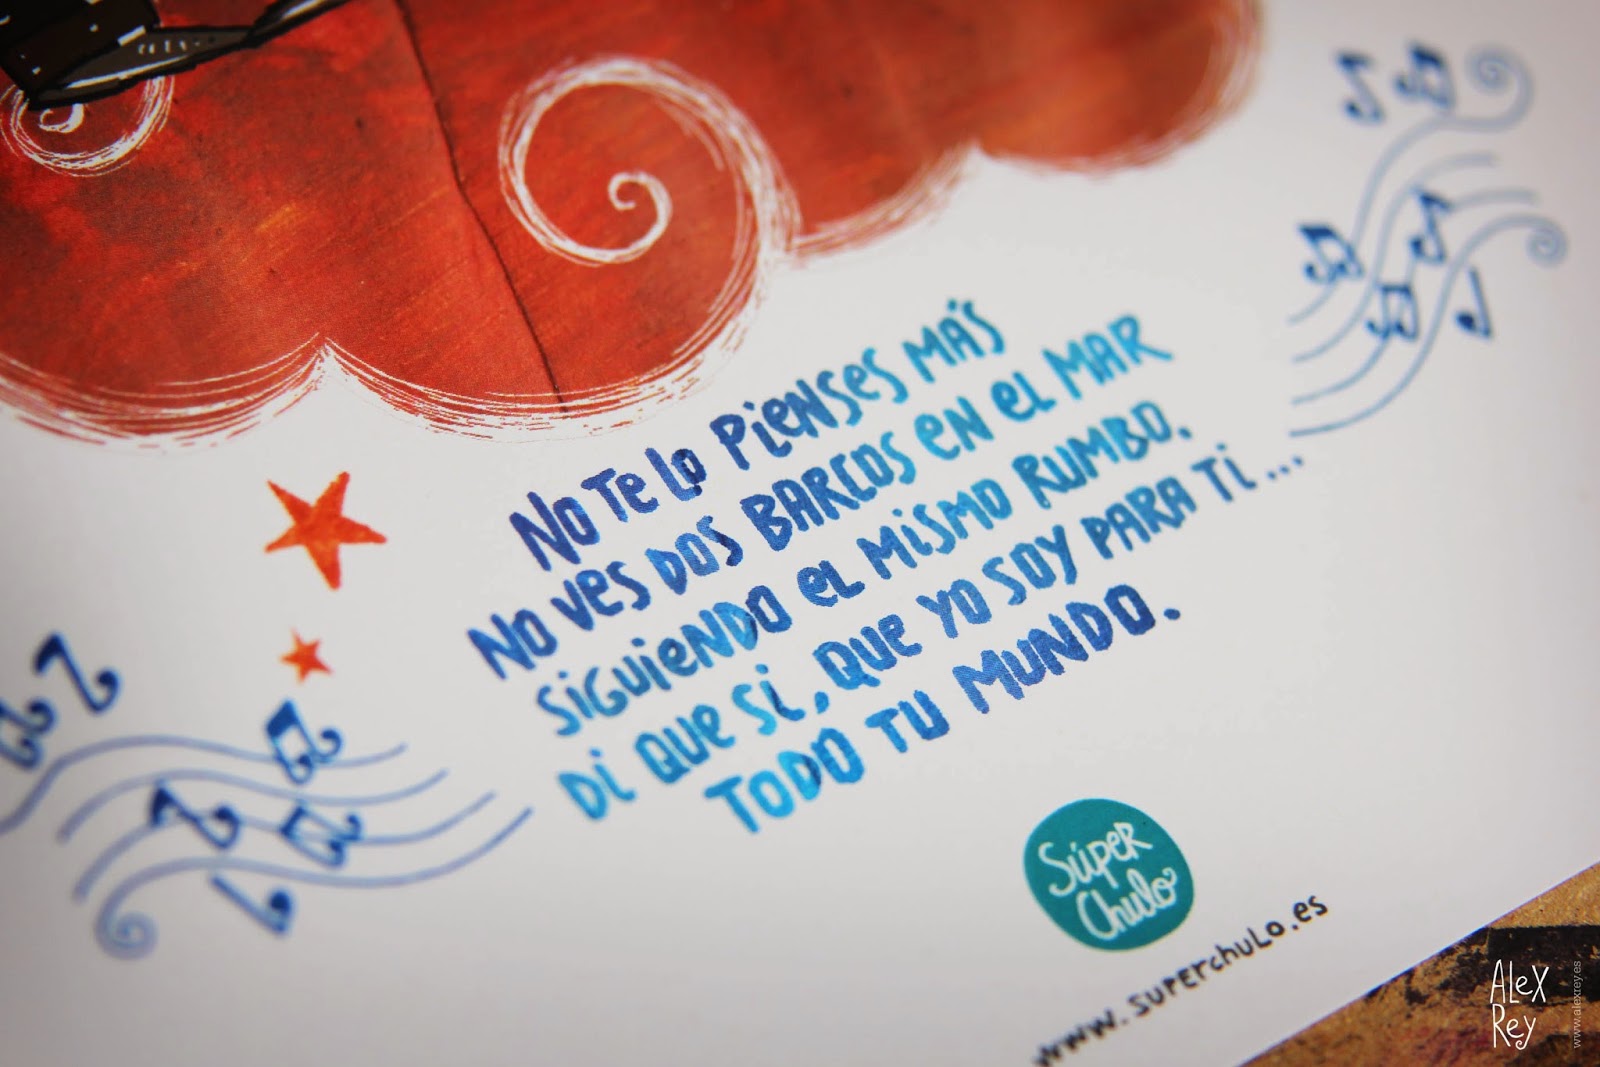 NO TE LO PIENSES MÁS
NO VES DOS BARCOS EN EL MAR
SIGUIENDO EL MISMO RUMBO.
DI QUE SI, QUE YO SOY PARA TI...
TODO TU MUNDO.
Súper
Chulo
www.superchulo.es
ALEX
REY
www.alexrey.es